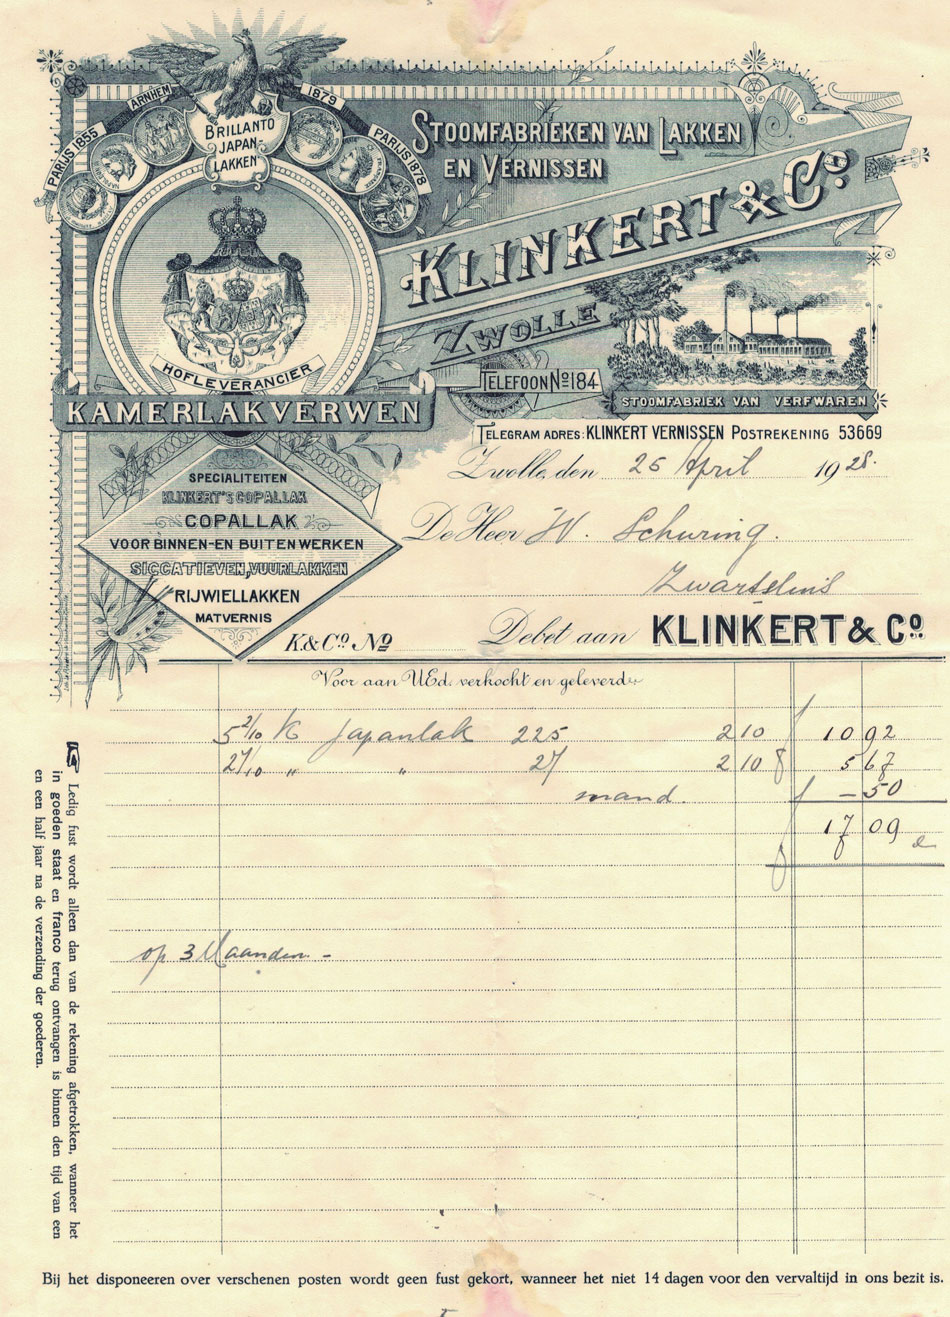 PARIJS 1855
ARNHEM 1879
PARIJS 1878
BRILLANTO
JAPAN
LAKKEN
STOOMFABRIEKEN VAN LAKKEN
EN VERNISSEN
KLINKERT & Co.
ZWOLLE
TELEFOON No 184
HOFLEVERANCIER
KAMERLAKVERWEN
STOOMFABRIEK VAN VERFWAREN
TELEGRAM ADRES: KLINKERT VERNISSEN POSTREKENING 53669
Zwolle, den 25 April 1928.
SPECIALITEITEN
KLINKERT'S COPALLAK
COPALLAK
VOOR BINNEN-EN BUITENWERKEN
SICCATIEVEN, VUURLAKKEN
RIJWIELLAKKEN
MATVERNIS
De Heer W. Schuring.
Zwartsluis
K. & Co. No
Debet aan KLINKERT & Co.
Voor aan UEd. verkocht en geleverd:
5 2/10 K Japanlak 225 2 10 f 10 92
2 7/10 " " 27 2 10 5 67
mand. f – 50
f 17 09
op 3 Maanden -
Ledig fust wordt alleen dan van de rekening afgetrokken, wanneer het
in goeden staat en franco terug ontvangen is binnen den tijd van een
en een half jaar na de verzending der goederen.
Bij het disponeeren over verschenen posten wordt geen fust gekort, wanneer het niet 14 dagen voor den vervaltijd in ons bezit is.